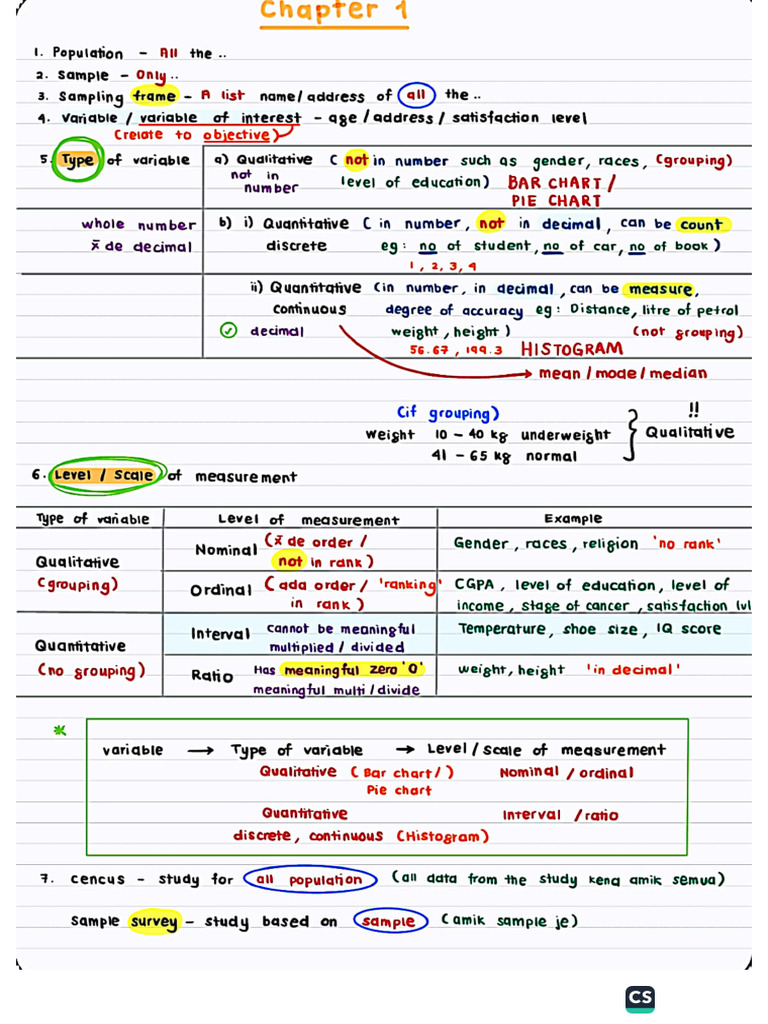 Chapter 1
1. Population - All the ..
2. Sample - Only ..
3. Sampling frame - A list name/address of all the ..
4. Variable / variable of interest - age / address / satisfaction level
(relate to objective)
5. Type of variable
a) Qualitative ( not in number such as gender, races, (grouping)
not in number
level of education) BAR CHART /
PIE CHART
whole number
x̄ de decimal
b) i) Quantitative ( in number, not in decimal, can be count
discrete eg: no of student, no of car, no of book )
1, 2, 3, 4
ii) Quantitative (in number, in decimal, can be measure,
continuous degree of accuracy eg: Distance, litre of petrol
decimal weight, height ) (not grouping)
56.67, 199.3 HISTOGRAM
mean / mode / median
(if grouping) !!
Weight 10 - 40 kg underweight Qualitative
41 - 65 kg normal
6. Level / Scale of measurement
Type of variable Level of measurement Example
Qualitative
(grouping)
Nominal (x̄ de order /
not in rank)
Gender, races, religion 'no rank'
Ordinal (ada order / 'ranking'
in rank )
CGPA, level of education, level of
income, stage of cancer, satisfaction lvl
Quantitative
(no grouping)
Interval cannot be meaningful
multiplied / divided
Temperature, shoe size, IQ score
Ratio Has meaningful zero '0'
meaningful multi / divide
weight, height 'in decimal'
* variable → Type of variable → Level / scale of measurement
Qualitative ( Bar chart / ) Nominal / ordinal
Pie chart
Quantitative Interval / ratio
discrete, continuous (Histogram)
7. cencus - study for all population (all data from the study kena amik semua)
Sample survey - study based on sample (amik sample je)
CS